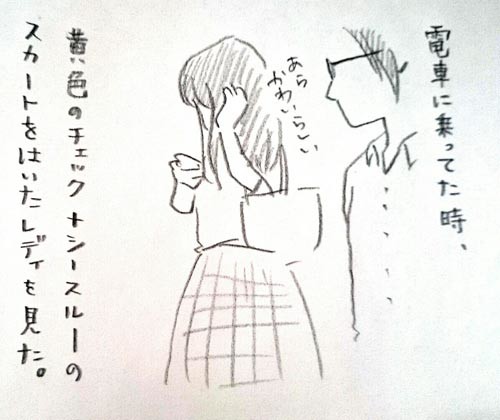 電車に乗ってた時、
あら
かわいらしい
黄色のチェック+シースルーの
スカートをはいたレディを見た。